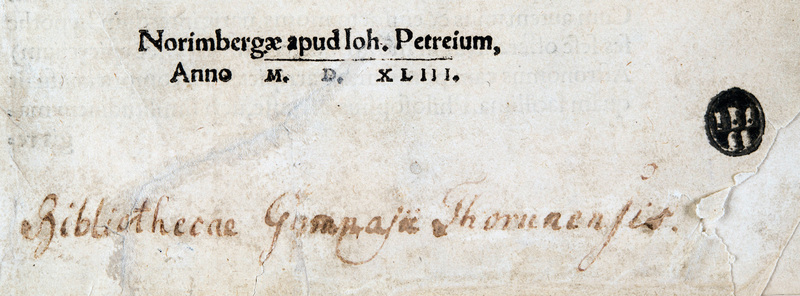 Norimbergæ apud Ioh. Petreium,
Anno M. D. XLIII.
Bibliothecae Gymnasii Thorunensis.